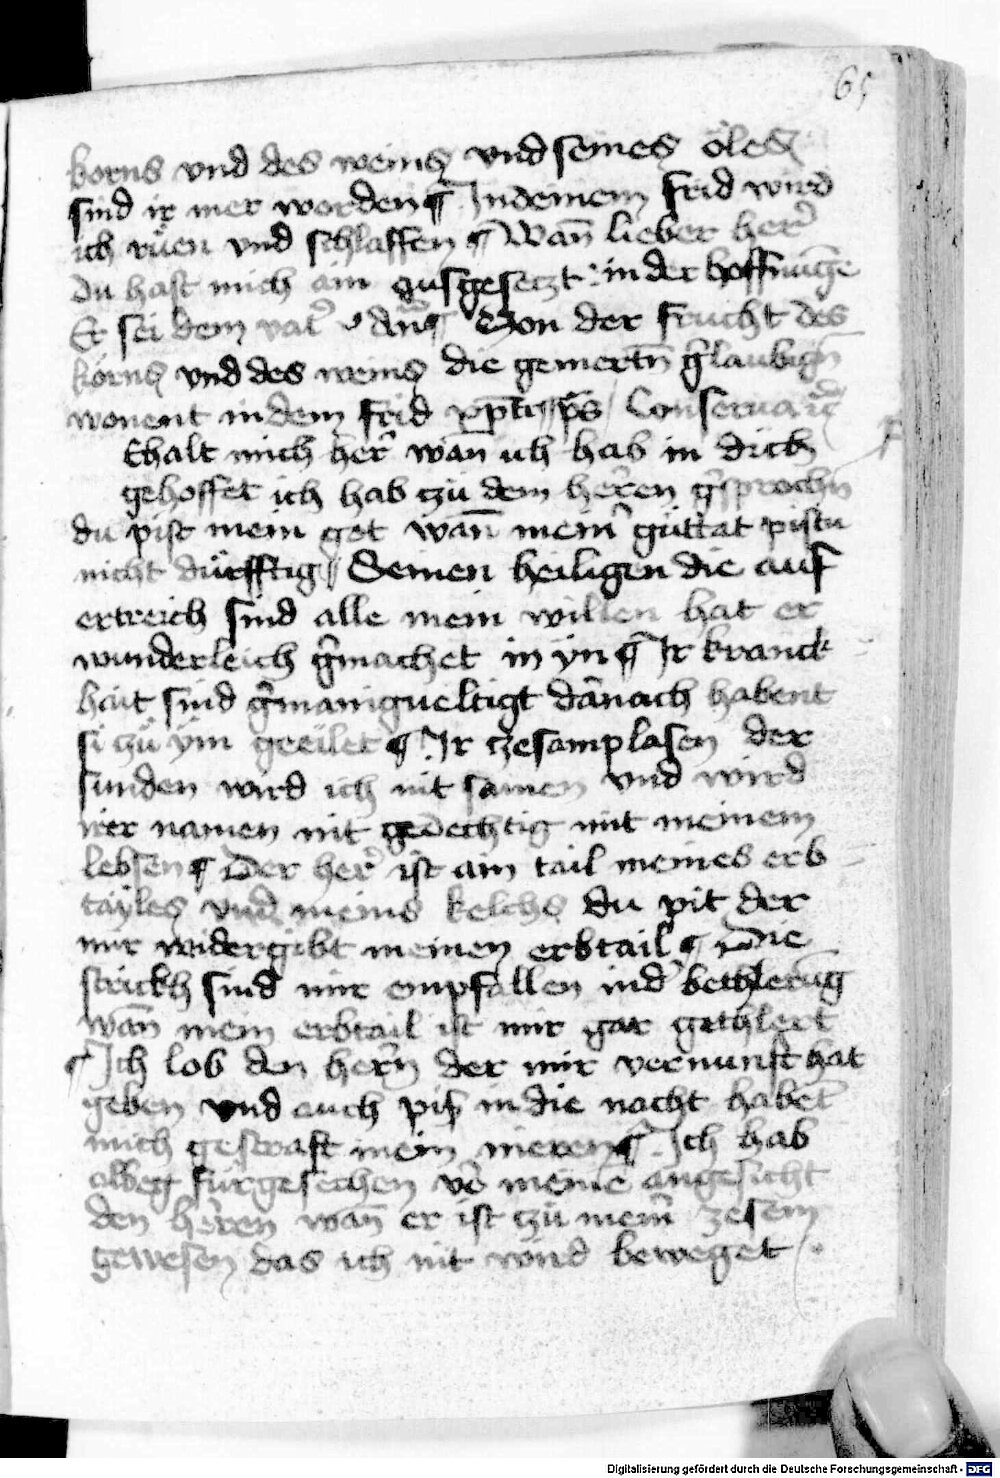 65
korns vnd des weins vnd seines öles
sind ir mer worden ¶ In deinem frid wird
ich rüen vnd schlaffen ¶ Wan̄ lieber her̃
du hast mich ain ausgeseczt in der hoffnūge
Er sei dem vat̃ Von der frucht des
korns vnd des weins die gemertn̄ glaubign̄
wonent in dem frid xp̄i ps̄ Conserua
Ehalt mich her̃ wan ich hab in dich
gehoffet ich hab czü dem heren gesprochn̄
du pist mein got wan̄ meiñ güttat pistu
nicht dürfftig Seinen heiligen die auf
ertreich sind alle mein willen hat er
wunderleich gemachet in yn ¶ Ir kranck
hait sind gemanigueltigt darnach habent
si czü ym geeilet ¶ Ir czesamplasen der
sunden wird ich nit samen vnd wird
irer namen nit gedechtig mit meinem
lebsen ¶ Der her̃ ist ain tail meines erb
tayles vnd meins kelchs du pit der
mir widergibt meinen erbtail ¶ Die
strickh sind mir empfallen in d̃
wan̄ mein erbtail ist mir gar
¶ Ich lob den hern̄ der mir vernunft hat
geben vnd auch pis in die nacht habēt
mich gestraft mein nieren ¶ Ich hab
albeg fürgesechen vō meine angesicht
den heren wan̄ er ist czü mein̄ zesem
gewesen das ich nit wird beweget
Digitalisierung gefördert durch die Deutsche Forschungsgemeinschaft - DFG